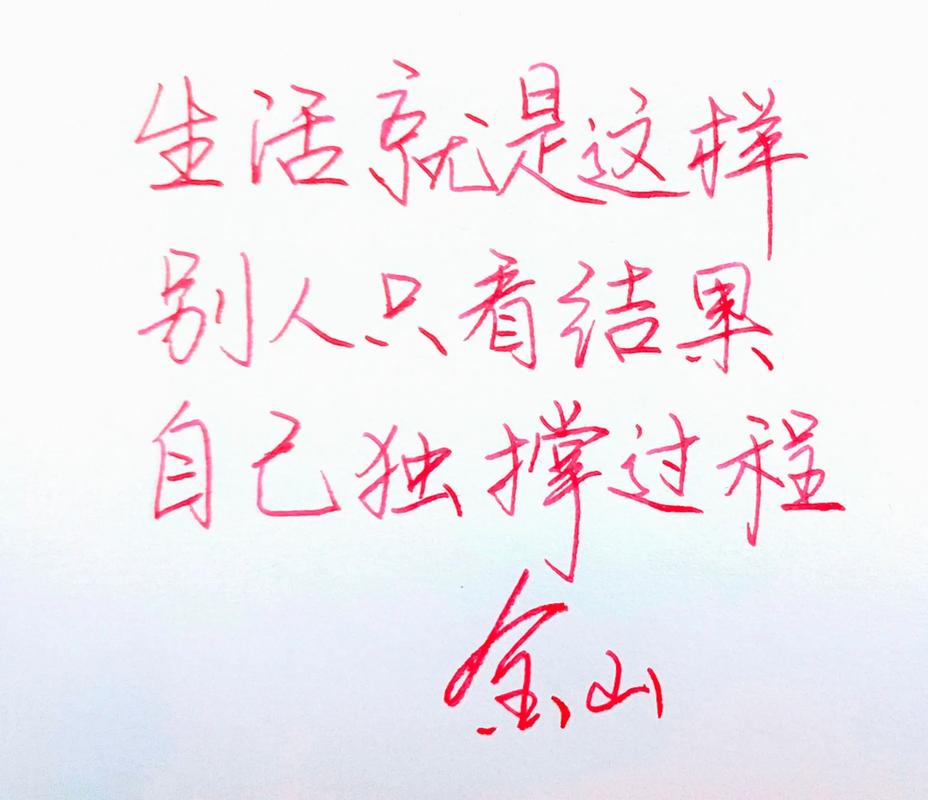 生活就是这样
别人只看结果
自己独撑过程
金山